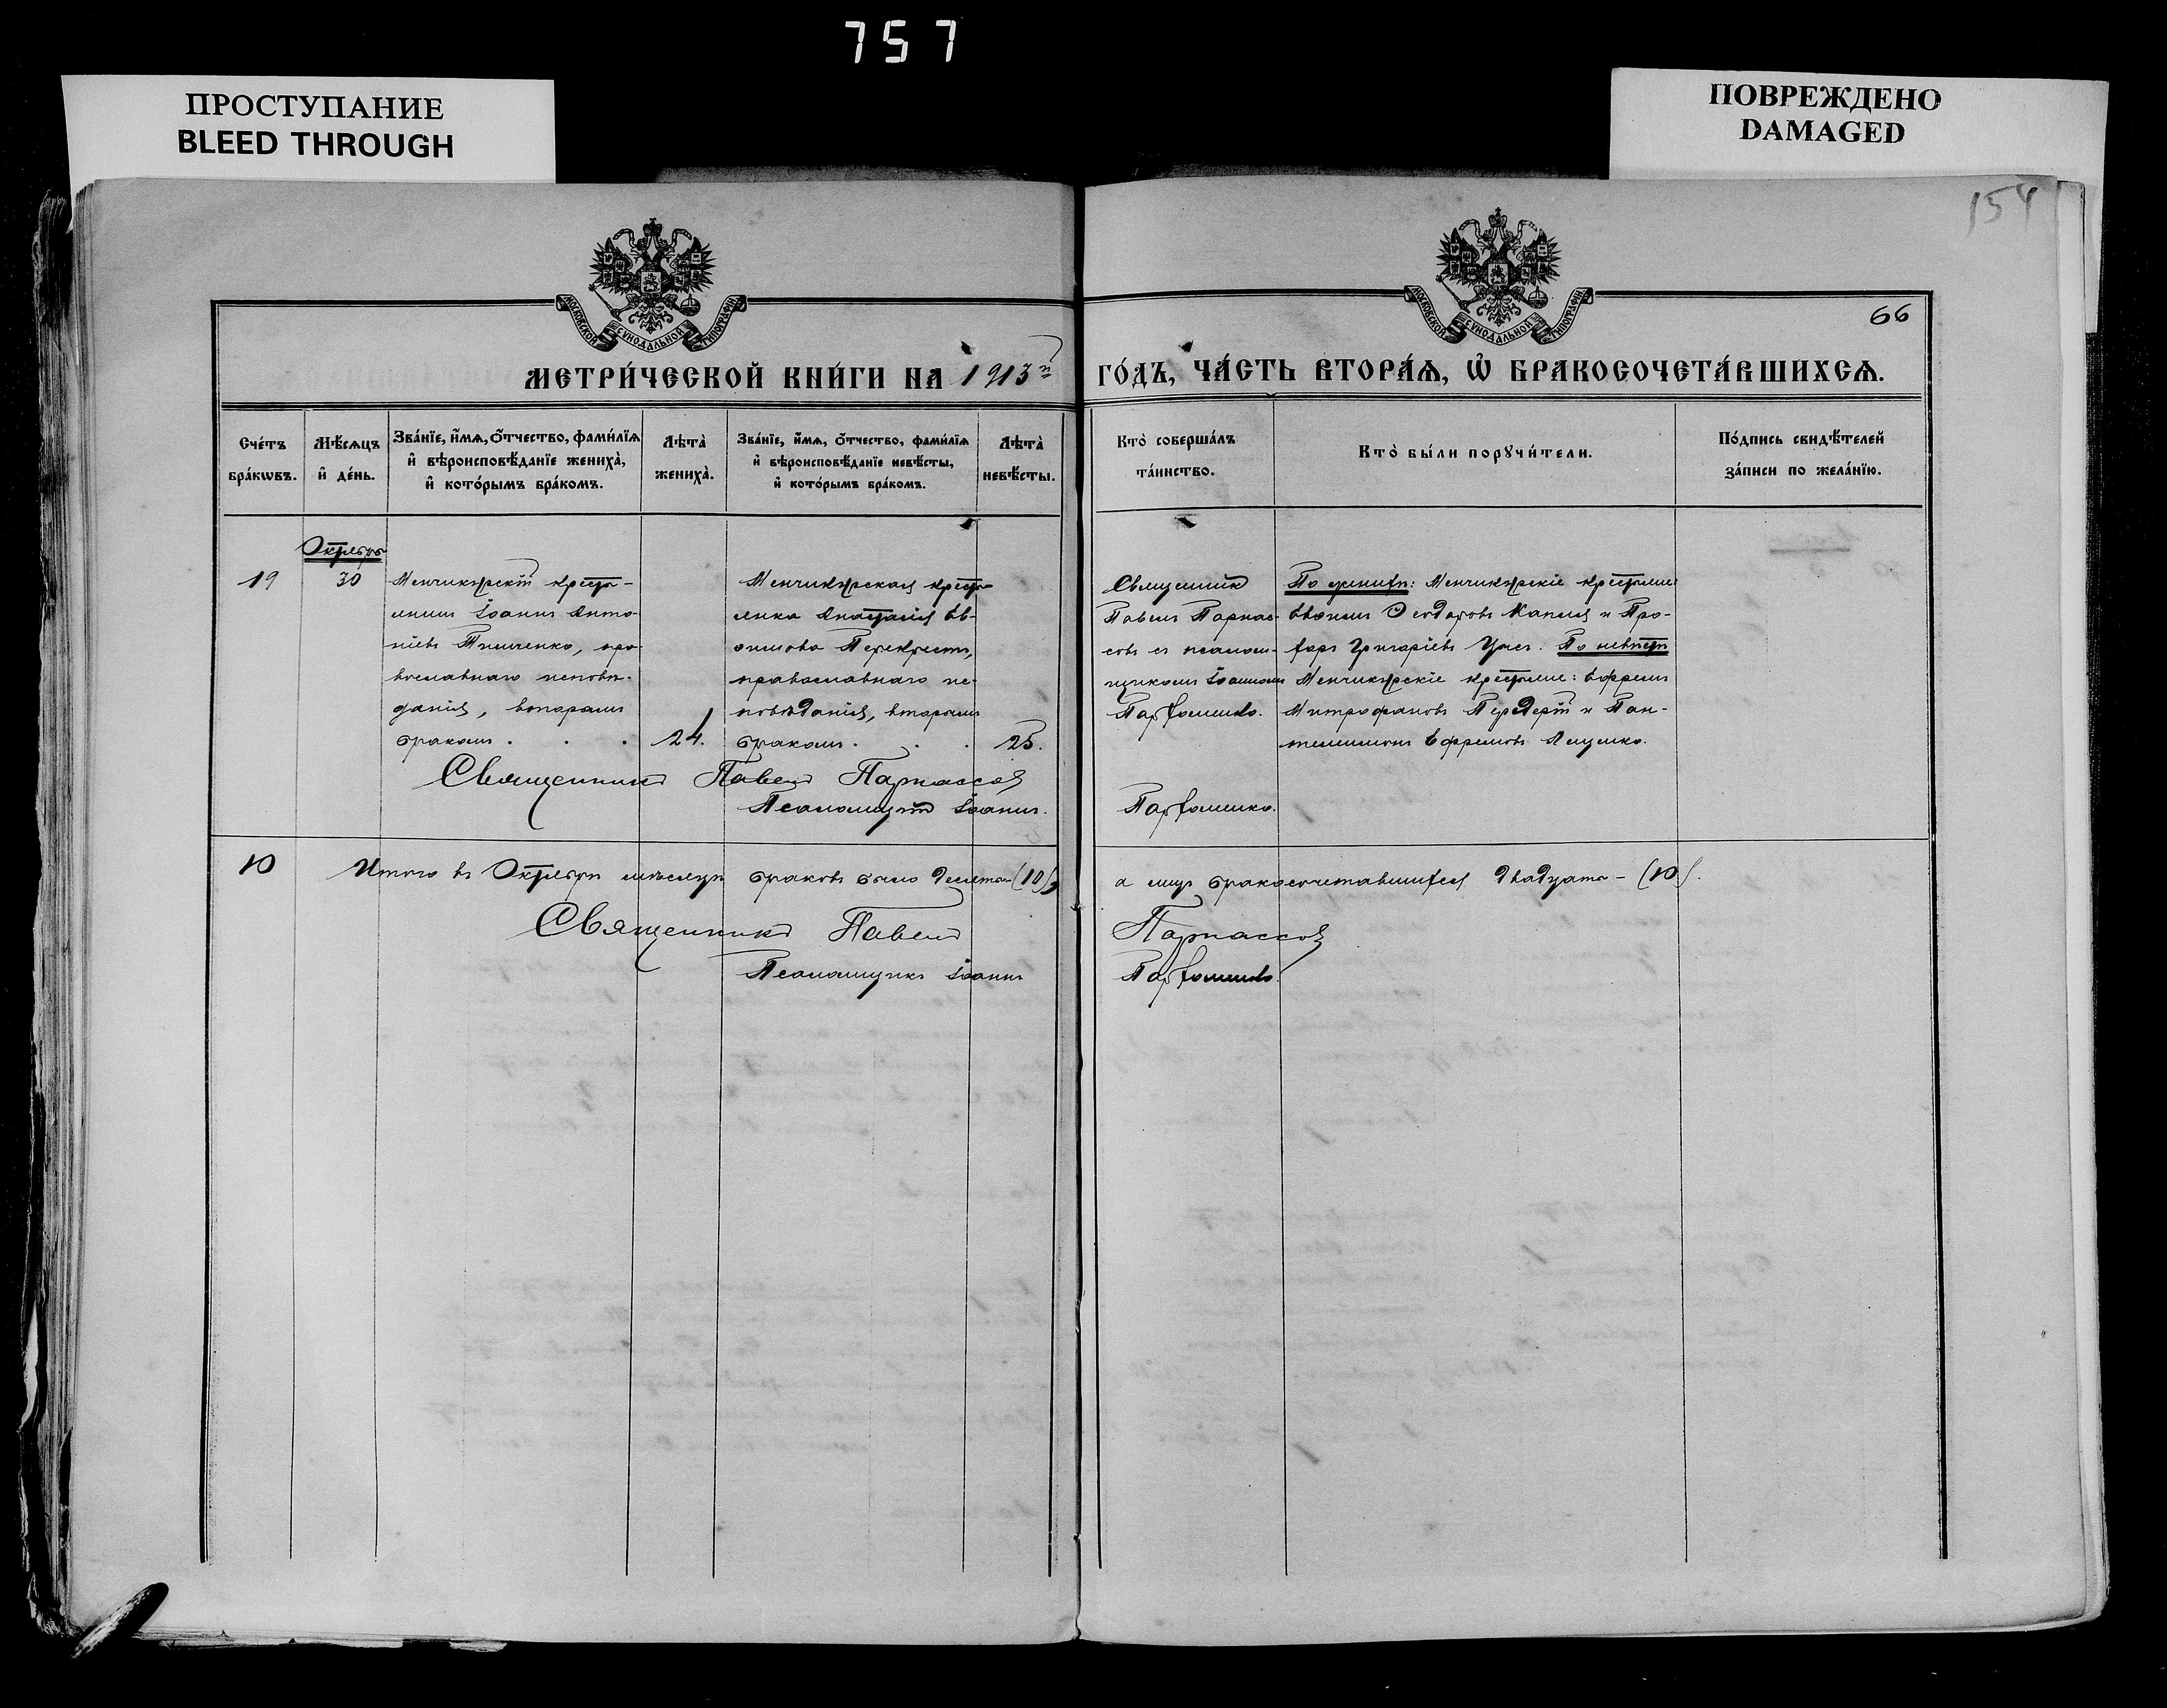 757
ПРОСТУПАНИЕ
BLEED THROUGH
ПОВРЕЖДЕНО
DAMAGED
154
МОСКОВСКОЙ СѴНОДАЛЬНОЙ ТИПОГРАФІИ
МОСКОВСКОЙ СѴНОДАЛЬНОЙ ТИПОГРАФІИ
66
МЕТРИ́ЧЕСКОЙ КНИ́ГИ НА 1913й
ГО́ДЪ, ЧА́СТЬ ВТОРА́Ѧ, Ѡ҆ БРАКОСОЧЕТА́ВШИХСѦ.
Сче́тъ
бра́кѡвъ.
Мѣ́сѧцъ
и҆ де́нь.
Зва́нїе, и҆́мѧ, о҆́тчество, фами́лїѧ
и҆ вѣроисповѣ́данїе жениха̀,
и҆ кото́рымъ бра́комъ.
Лѣта̀
жениха̀.
Зва́нїе, и҆́мѧ, о҆́тчество, фами́лїѧ
и҆ вѣроисповѣ́данїе невѣ́сты,
и҆ кото́рымъ бра́комъ.
Лѣта̀
невѣ́сты.
Кто̀ соверша́лъ
та́инство.
Кто̀ бы́ли порꙋчи́тели.
По́дпись свидѣ́телей
за́писи по жела́нїю.
Октябрь
19
30
Менчикурскій кресть-
янинъ Іоаннъ Анто-
ніевъ Тимченко, пра-
вославнаго исповѣ-
данія, вторымъ
бракомъ . . .
24.
Менчикурская кресть-
янка Анастасія Ев-
фимова Перекрестъ,
православнаго ис-
повѣданія, вторымъ
бракомъ . . .
25.
Священникъ
Павелъ Парнас-
совъ съ псалом-
щикомъ Іоанномъ
Парфоменко.
По женихѣ: Менчикурскіе крестьяне
Ѳеодоровъ Капля и Про-
хоръ Григоріевъ По невѣстѣ
Менчикурскіе крестьяне: Ефремъ
Митрофановъ Передерій и Пан-
телеимонъ Ефремовъ Ященко.
Священникъ Павелъ Парнассовъ
Псаломщикъ Іоаннъ
Парфоменко.
10
Итого въ Октябрѣ мѣсяцѣ браковъ было десять (10),
а лицъ бракосочетавшихся двадцать – (10).
Священникъ Павелъ
Парнассовъ
Псаломщикъ Іоаннъ
Парфоменко